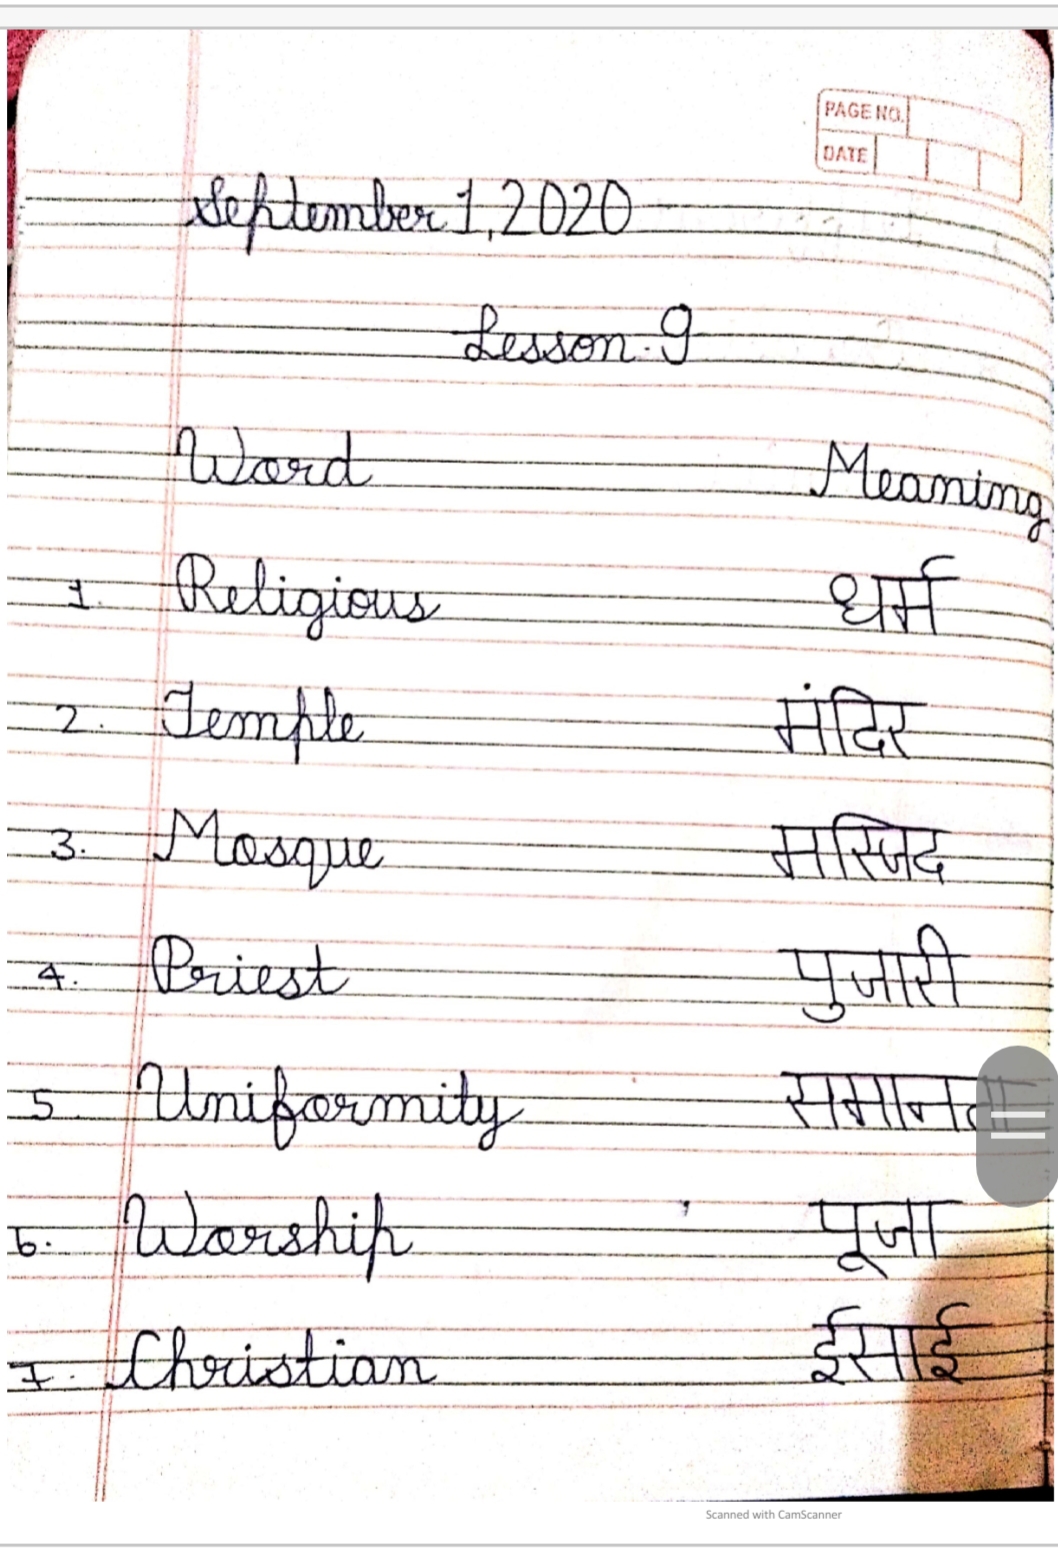 PAGE NO.
DATE
September 1, 2020
Lesson-9
Word Meaning
1. Religious धर्म
2. Temple मंदिर
3. Mosque मस्जिद
4. Priest पुजारी
5 Uniformity समानता
6. Worship पूजा
7. Christian ईसाई
Scanned with CamScanner